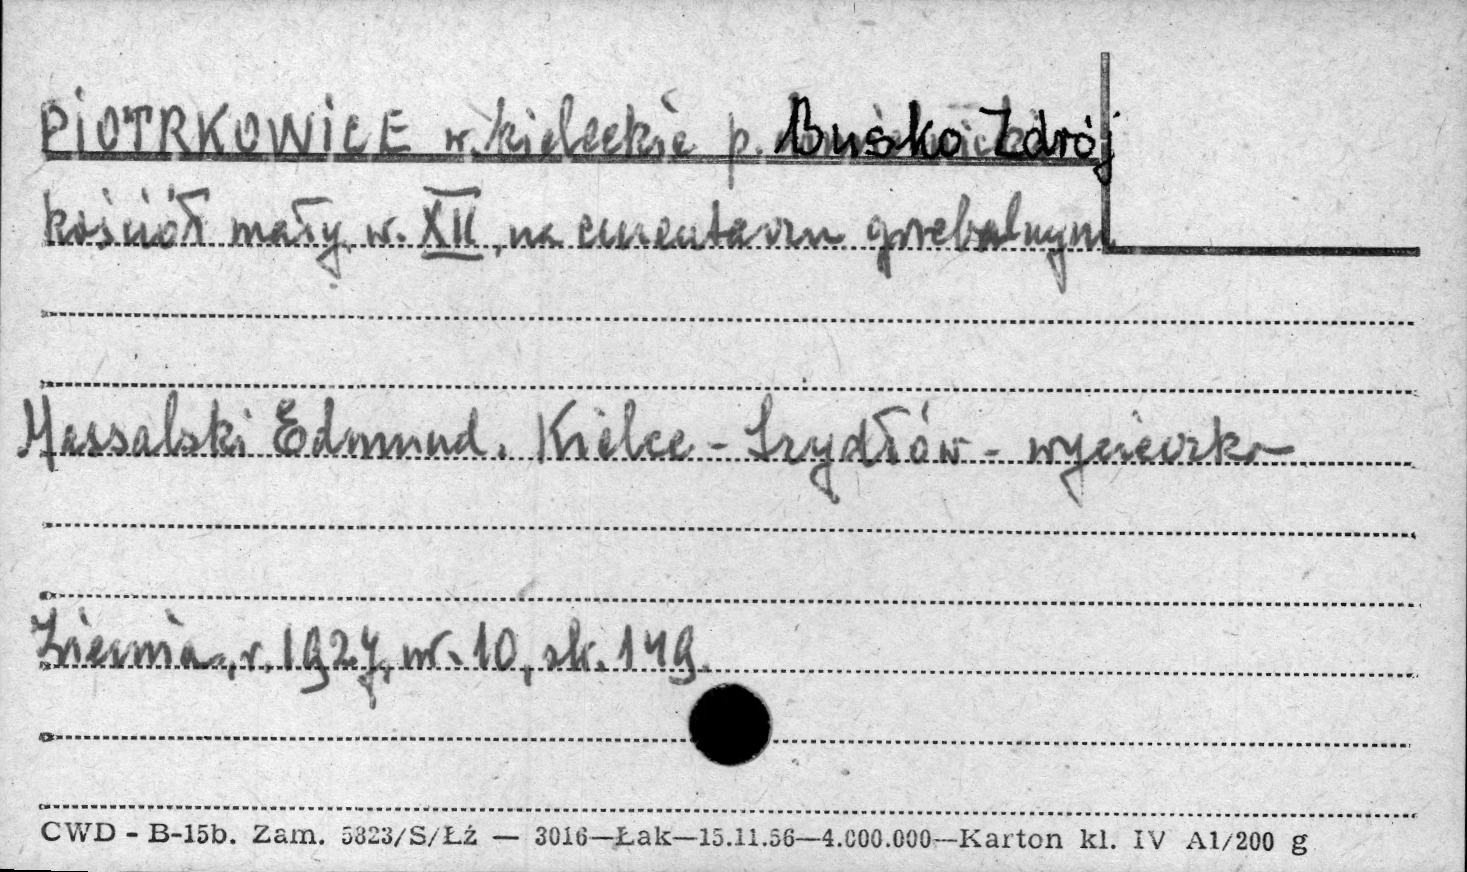 PIOTRKOWICE w. kieleckie p. Busko Zdrój
kościół mały w. XII, na cmentarzu grzebalnym
Massalski Edmund. Kielce - Szydłów - wycieczka
Ziemia, r. 1927, nr. 10, str. 149.
CWD - B-15b. Zam. 5823/S/Łź — 3016—Łak—15.11.56—4.000.000—Karton kl. IV A1/200 g